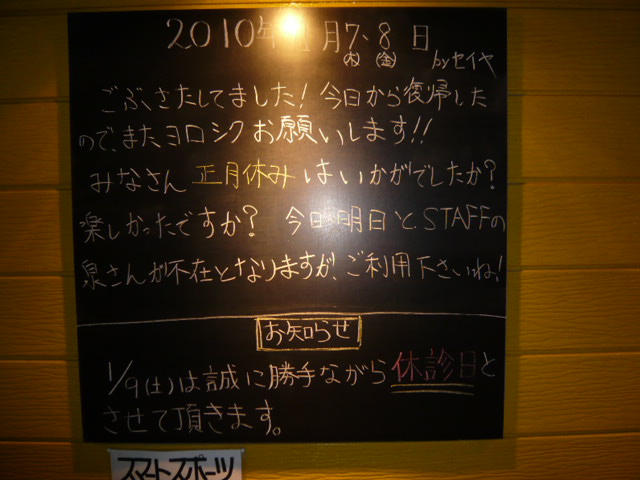 2010年 月7、8日
(木)(金) byセイヤ
ごぶさたしてました!今日から復帰した
ので、またヨロシクお願いします!!
みなさん正月休みはいかがでしたか?
楽しかったですか? 今日明日とSTAFFの
泉さんが不在となりますが、ご利用下さいね!
お知らせ
1/9(土)は誠に勝手ながら休診日と
させて頂きます。
スマートスポーツ